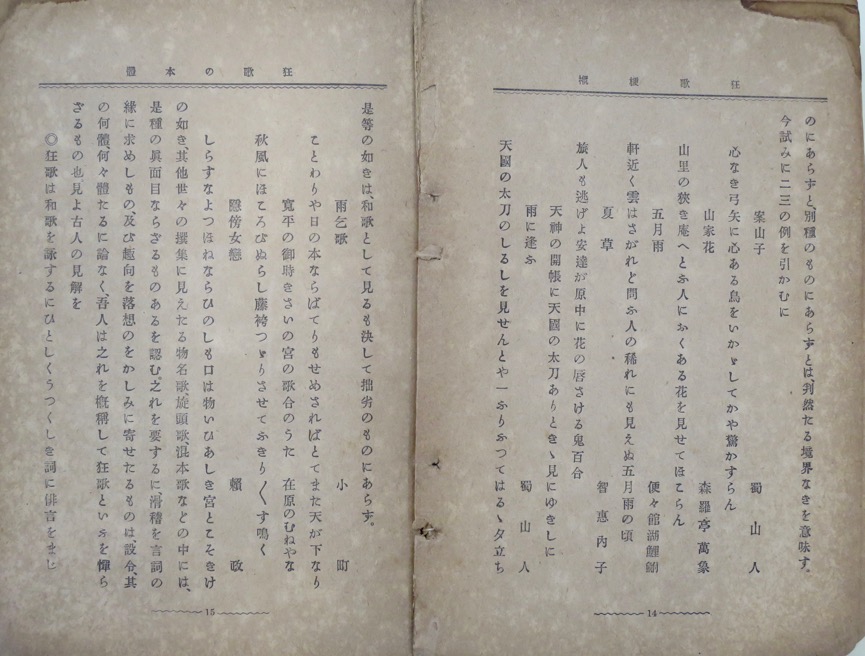 狂歌樸樕
のにあらずと、別種のものにあらずとは、判然たる境界なきを意味す。
今試みに二三の例を引かむに
案山子　蜀山人
心なき弓矢に心ある鳥をいかゞしてかや驚かすらん
山家花　森羅亭萬象
山里の狹き庵へとふ人におくある花を見せてほこらん
五月雨　便々館湖鯉鮒
軒近く雲はさがれど問ふ人の稀れにも見えぬ五月雨の頃
夏草　智惠內子
旅人も逃げよ安達が原中に花の唇さける鬼百合
天神の開帳に天國の太刀ありときゝ見にゆきしに
雨に逢ふ　蜀山人
天國の太刀のしるしを見せんとや一ふりふつてはるゝ夕立ち
14
狂歌の本體
是等の如きは、和歌として見るも決して拙劣のものにあらず。
雨乞歌　小町
ことわりや日の本ならばてりもせめさればとてまた天が下なり
寬平の御時きさいの宮の歌合のうた　在原のむねやな
秋風にほころびぬらし藤袴つゞりさせてふきり〳〵す鳴く
隱傍女戀　賴政
しらすなよつほねならひのしも口は物いひあしき宮とこそきけ
の如き、其他世々の撰集に見えたる物名歌、旋頭歌、混本歌などの中には、
是種の眞面目ならざるものあるを認む、之れを要するに、滑稽を言詞の
緣に求めしもの、及び趣向を落想のをかしみに寄せたるものは、設令、其
の何體、何々體たるに論なく、吾人は之れを槪稱して狂歌といふを憚ら
ざるもの也見よ古人の見解を
◎狂歌は和歌を詠ずるにひとしくうつくしき詞に俳言をまじ
15